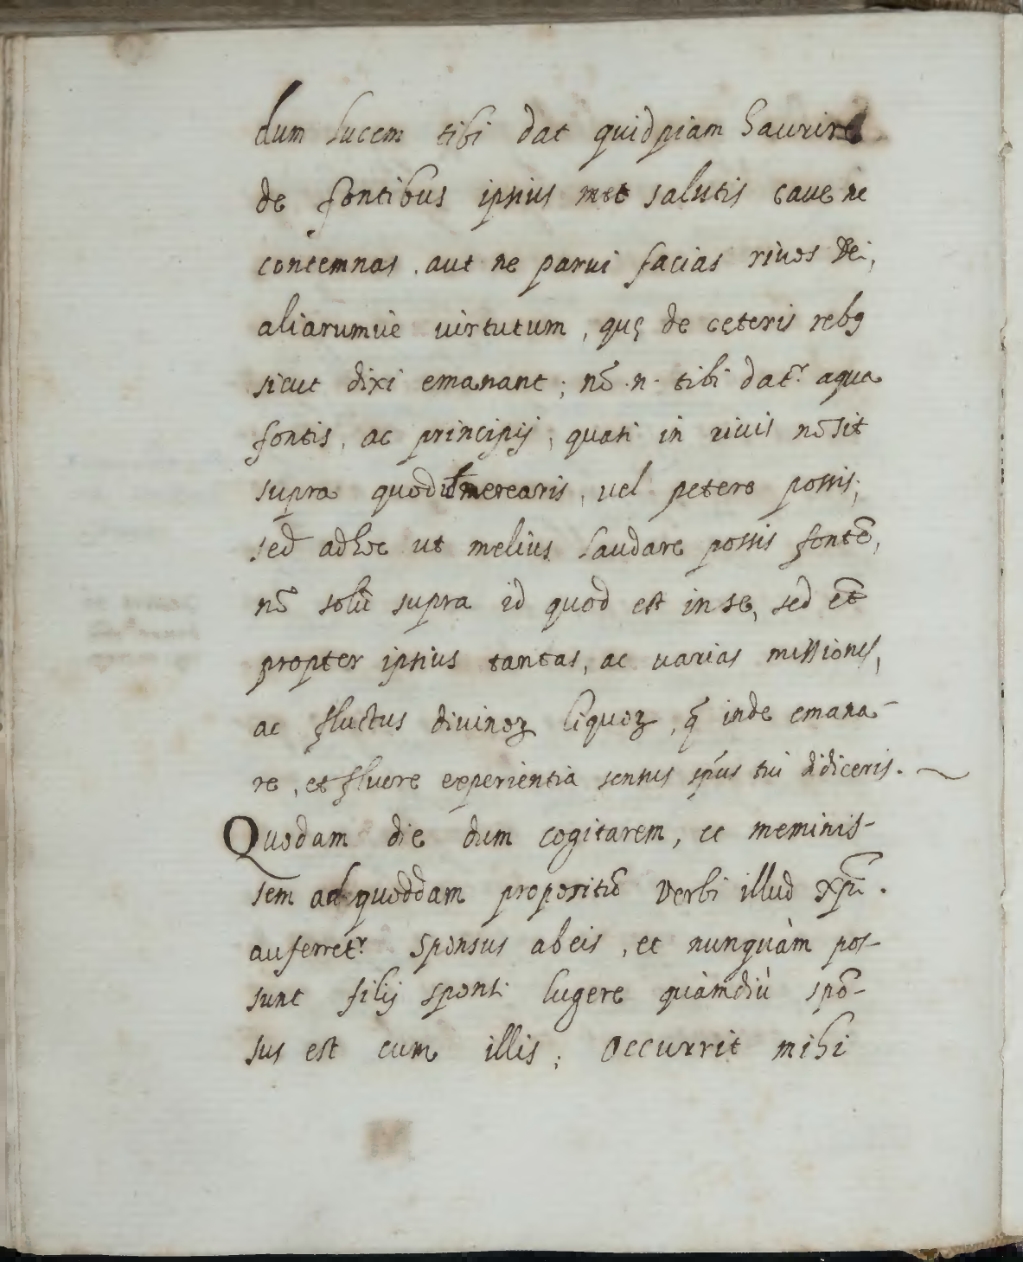 dum lucem tibi dat quidpiam haurire
de fontibus ipsius met salutis caue ne
contemnas, aut ne parui facias riuos Dei,
aliarumue uirtutum, quę de cęteris rebꝫ
sicut dixi emanant; nō .n. tibi datr aqua
fontis, ac principij, quasi in riuis nō sit
supra quod merearis, uel petere possis;
sed adhoc ut melius laudare possis fontē,
nō solū supra id quod est in se, sed et̄
propter ipsius tantas, ac uarias missiones,
ac fluctus divinoꝝ liquoꝝ, q̄ inde emana-
re, et fluere experientia sensus spūs tui didiceris.
Quodam die dum cogitarem, et meminis-
sem ad quoddam propositū verbi illud xp̄i.
auferretr sponsus ab eis, et nunquàm pos-
sunt filij sponsi lugere quàmdiù spō-
sus est cum illis; occurrit mihi